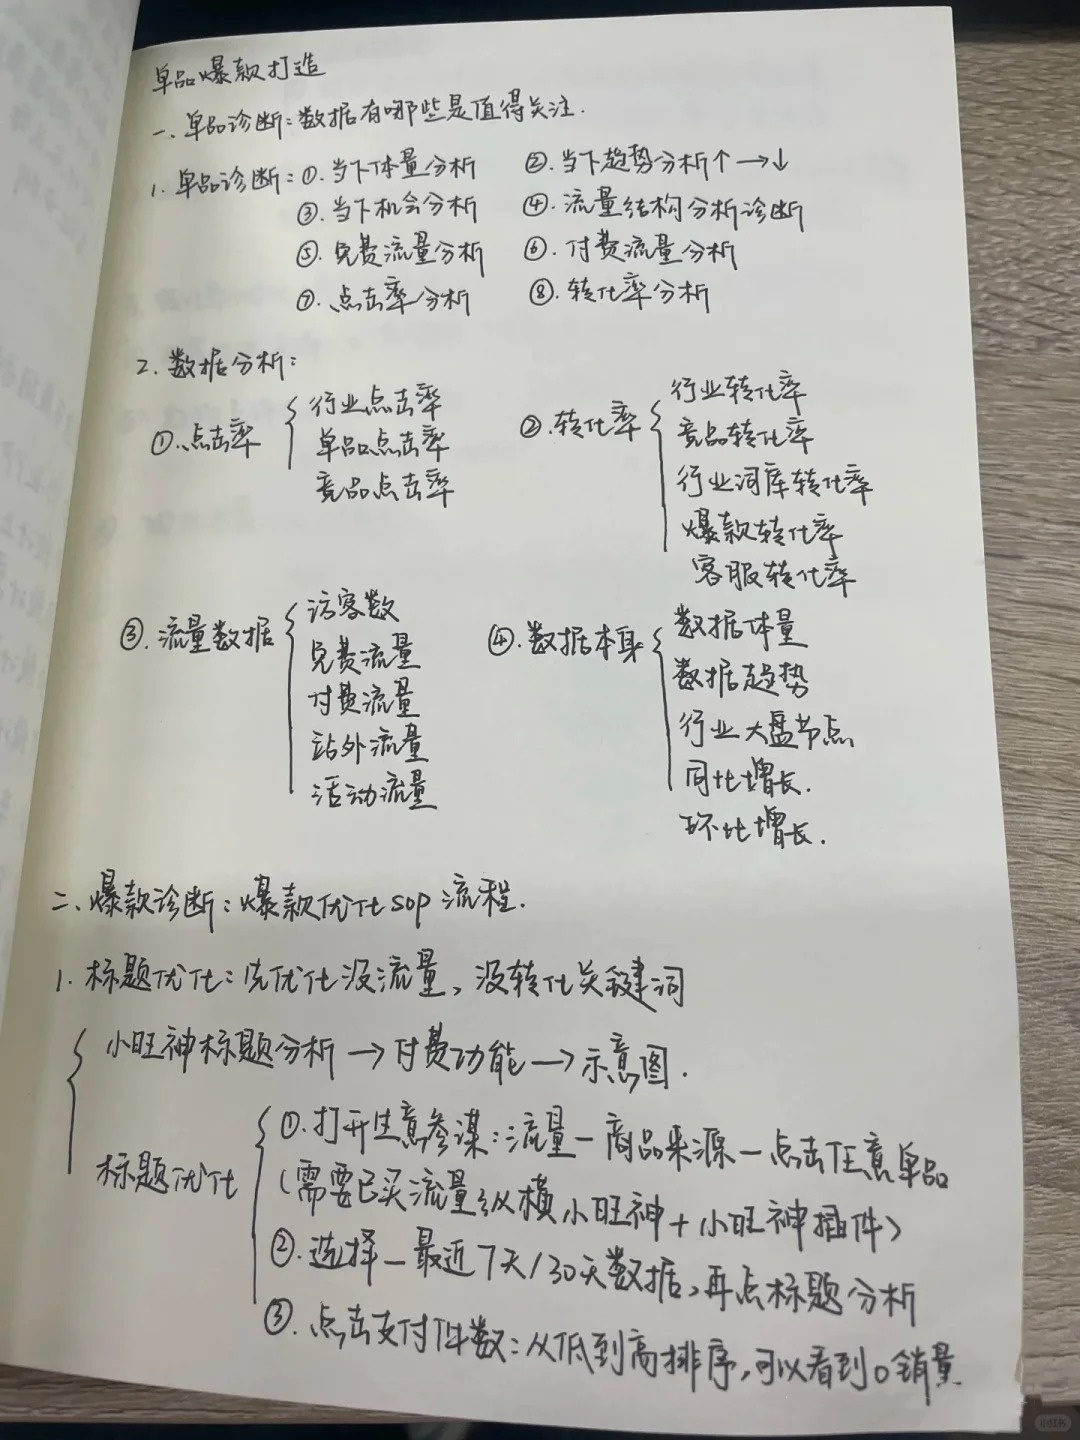 单品爆款打造
一、单品诊断：数据有哪些是值得关注.
1. 单品诊断：①.当下体量分析 ②.当下趋势分析↑→↓
③.当下机会分析 ④.流量结构分析诊断
⑤.免费流量分析 ⑥.付费流量分析
⑦.点击率分析 ⑧.转化率分析
2.数据分析：
①.点击率
行业点击率
单品点击率
竞品点击率
②.转化率
行业转化率
竞品转化率
行业词库转化率
爆款转化率
客服转化率
③.流量数据
访客数
免费流量
付费流量
站外流量
活动流量
④.数据本身
数据体量
数据趋势
行业大盘节点
同比增长.
环比增长.
二、爆款诊断：爆款优化sop流程.
1. 标题优化：先优化没流量，没转化关键词
小旺神标题分析→付费功能→示意图.
标题优化
①.打开生意参谋：流量—商品来源—点击任意单品
(需要已买流量纵横小旺神+小旺神插件)
②.选择—最近7天/30天数据，再点标题分析
③.点击支付件数：从低到高排序，可以看到0销量
小红书